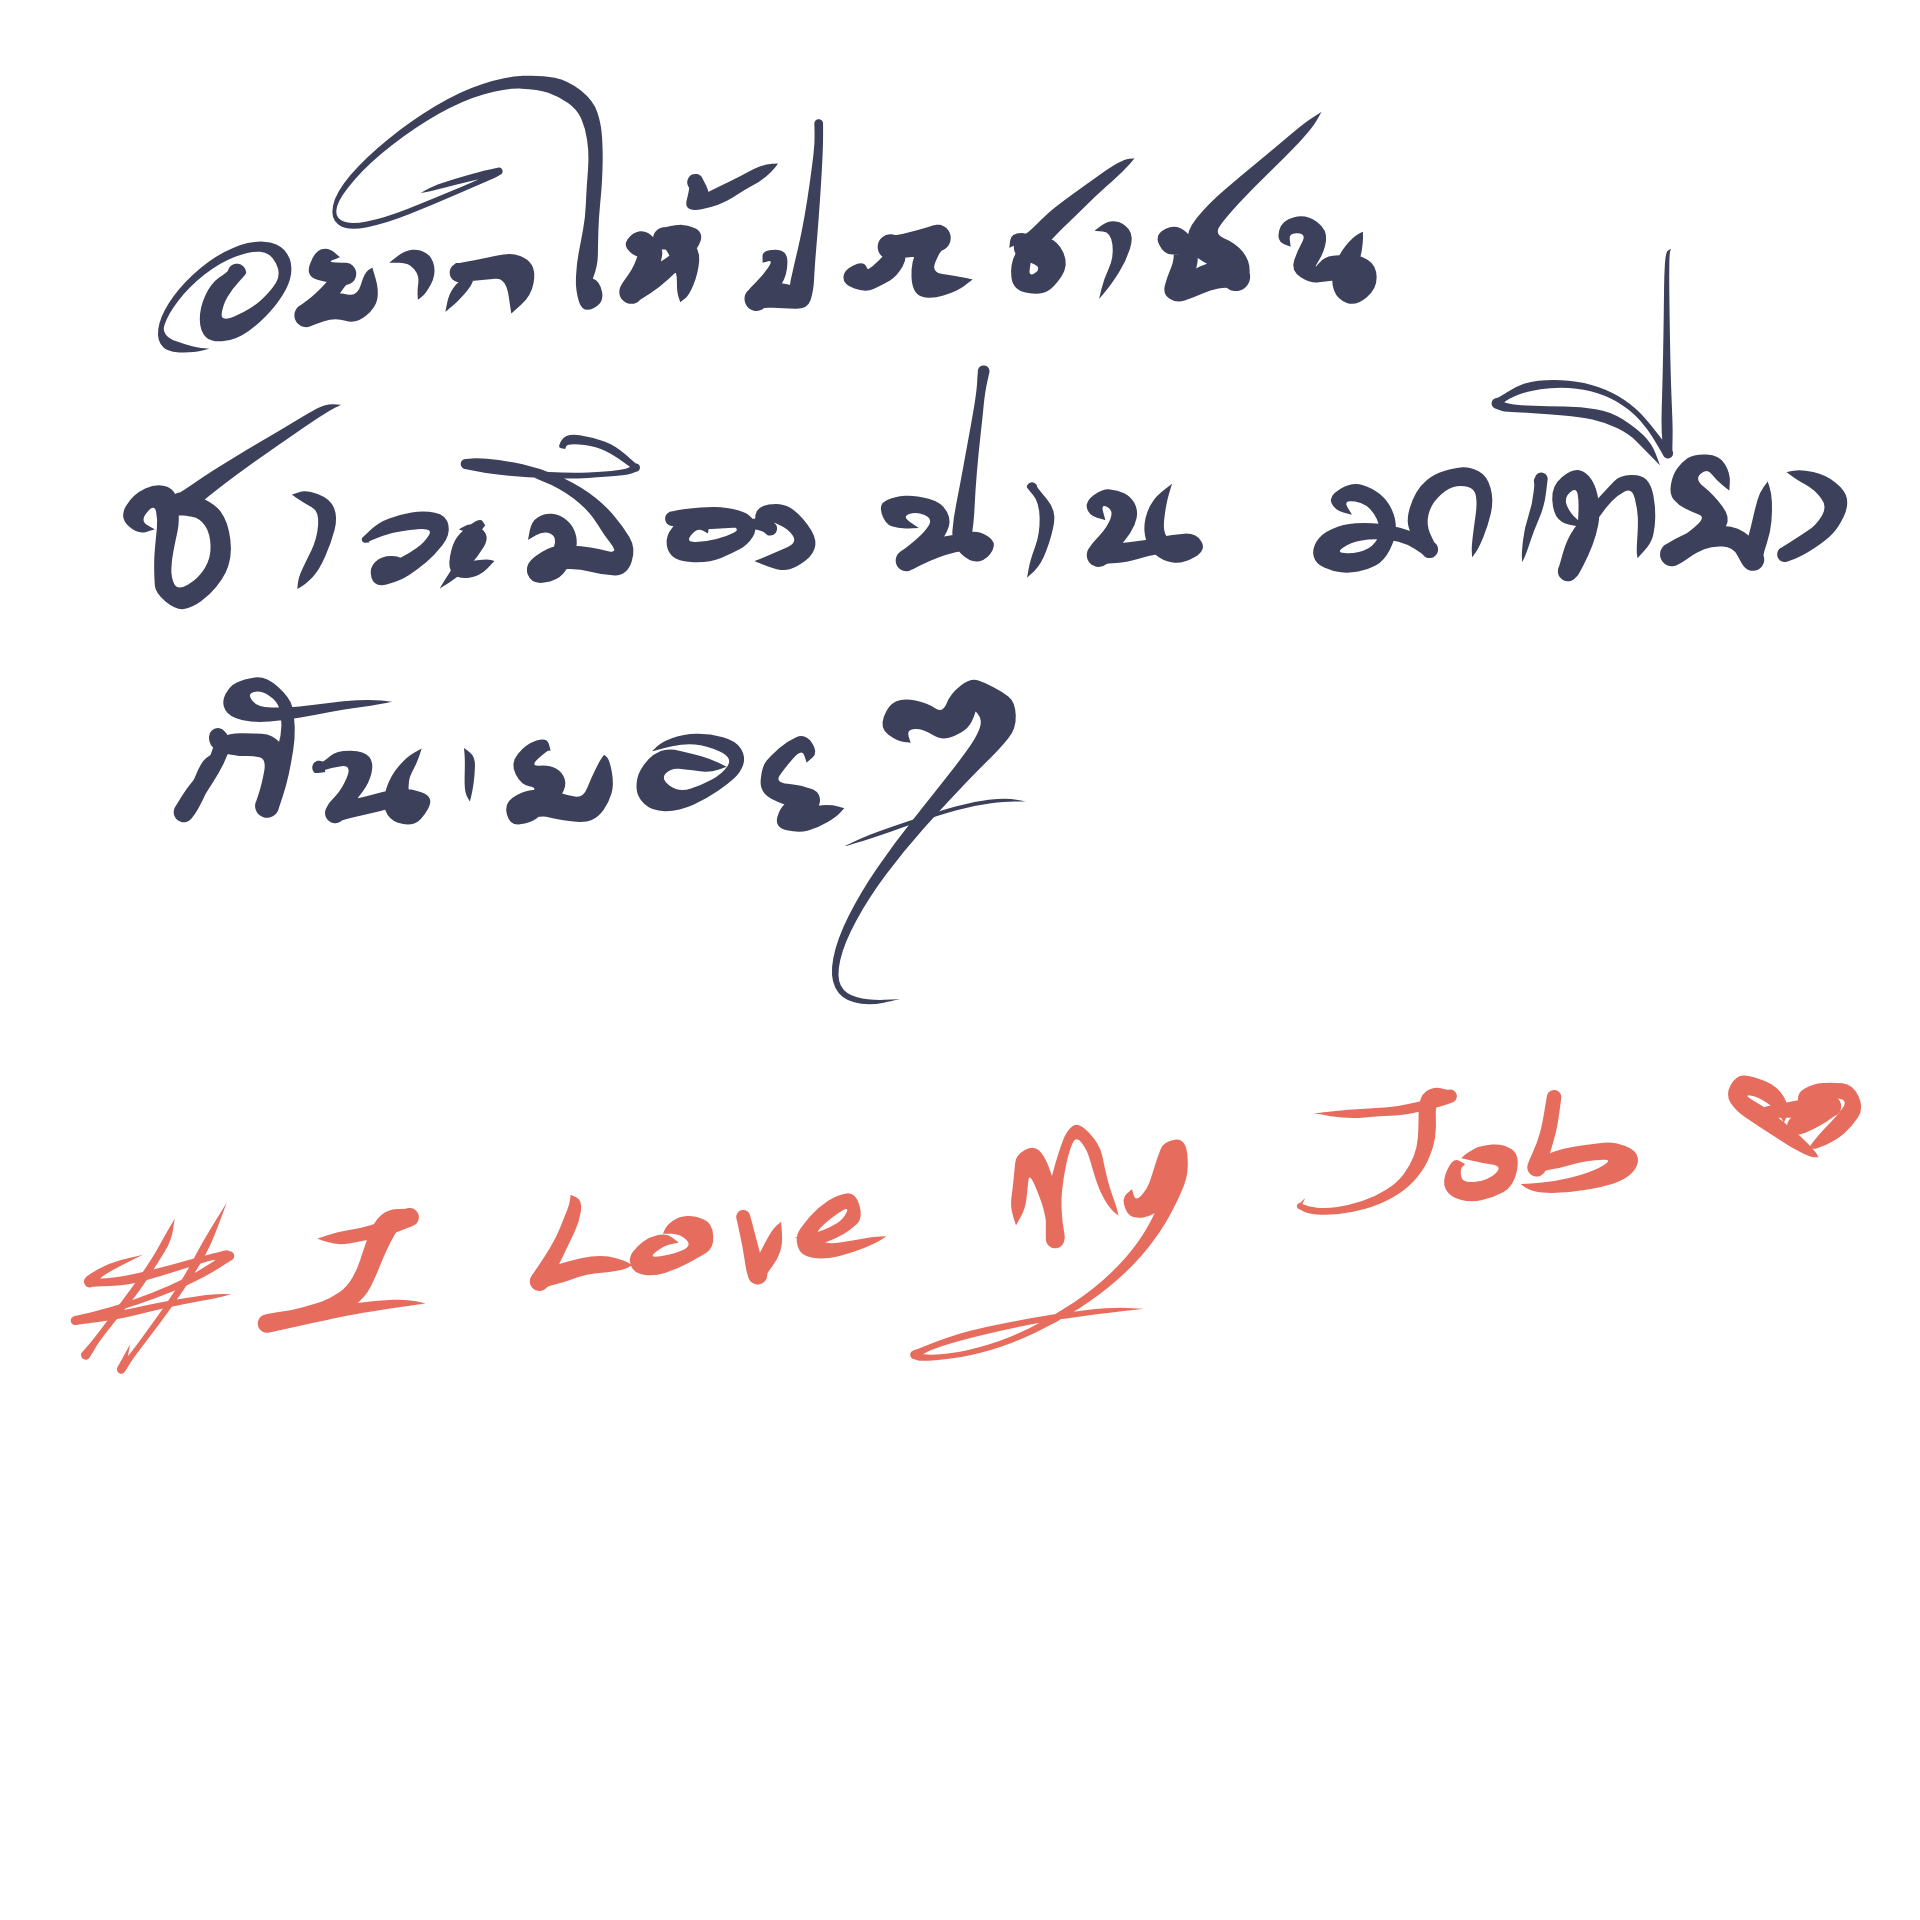 อยากให้ประชาชน
ชาวเมืองปาน ออกเที่ยว
กันเยอะๆ
#I Love My Job